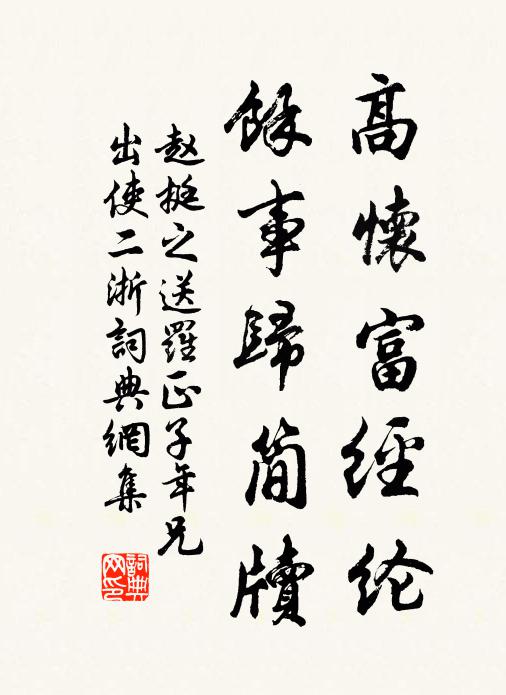 高懷富經纶
餘事歸简牘
赵挺之送羅正子年兄
出使二浙詞典網集
詞典
网印